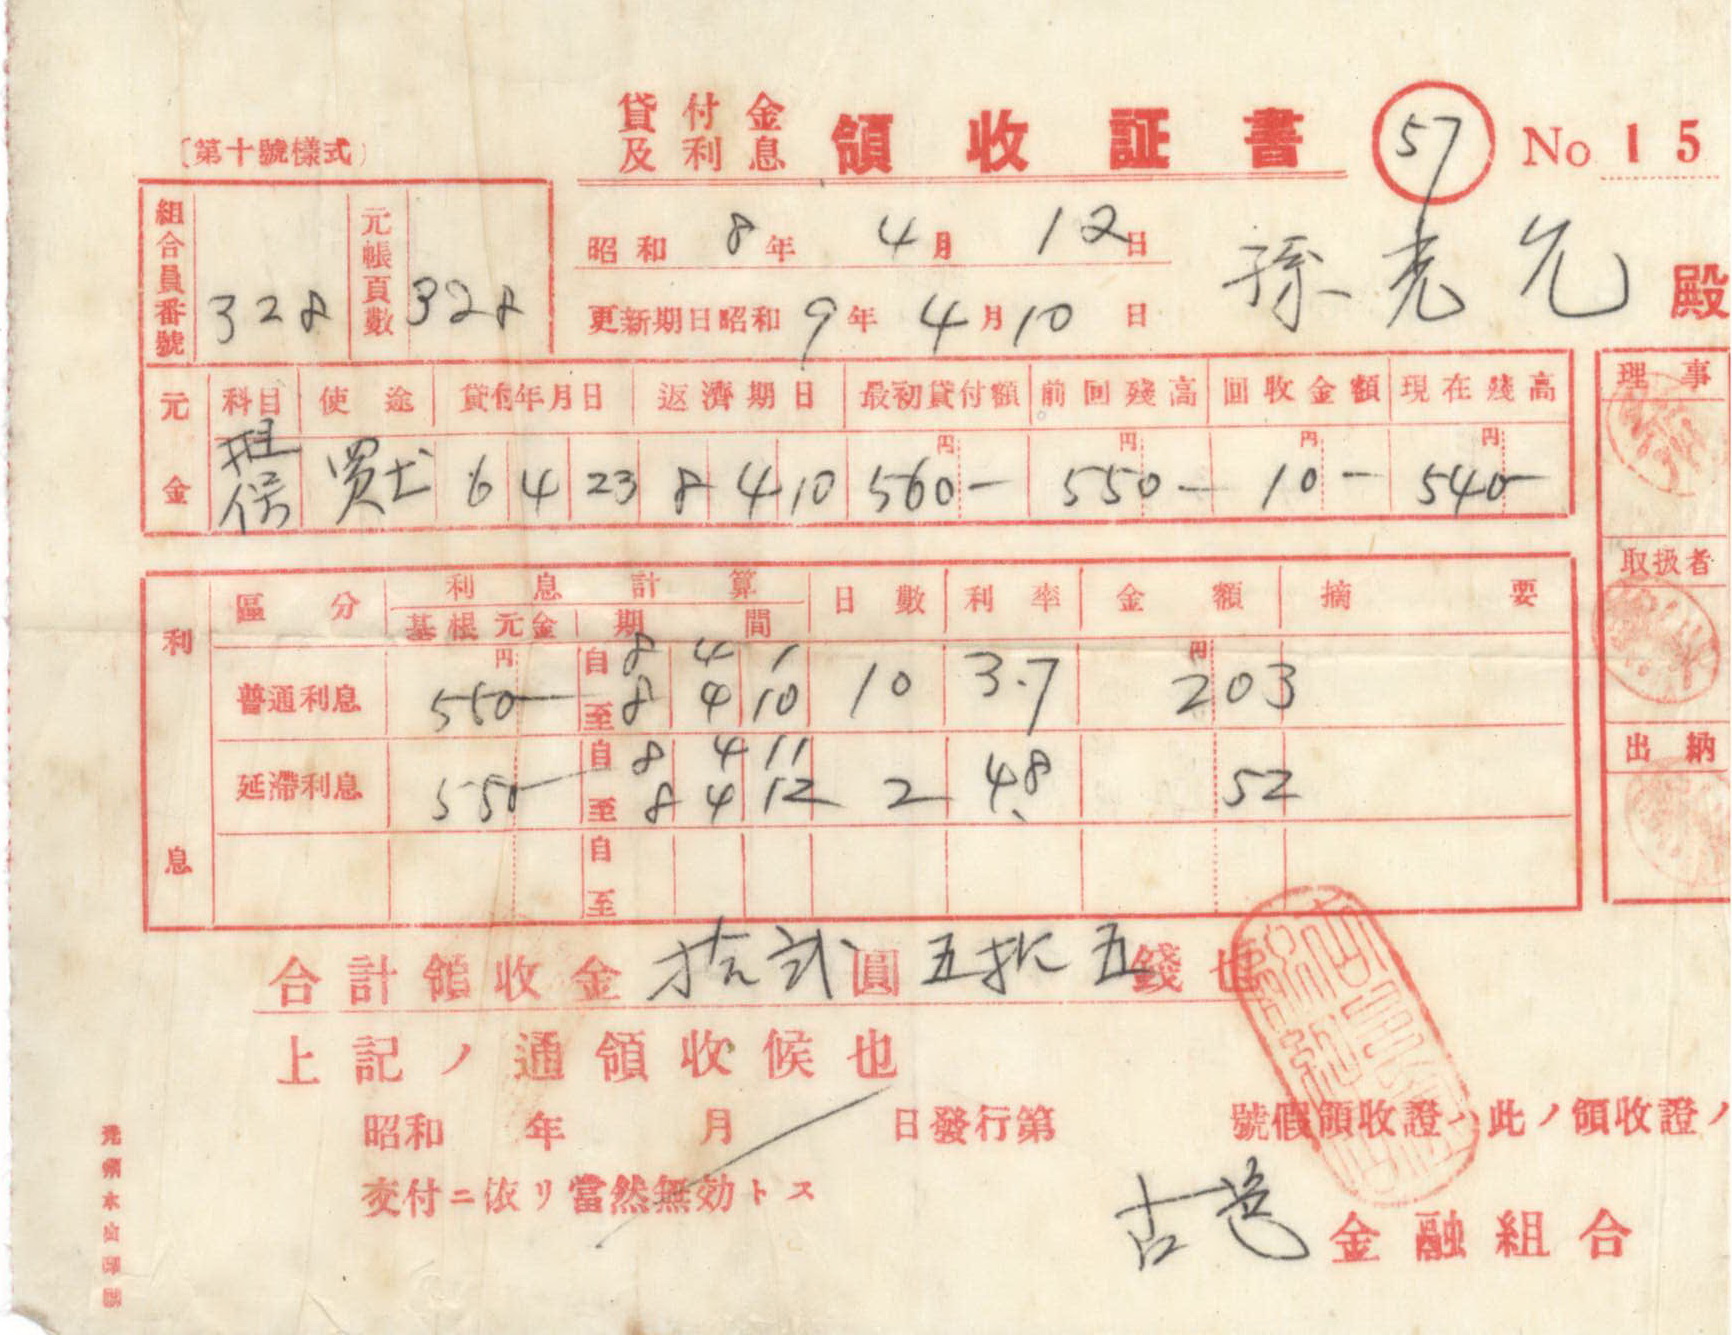 〔第十號樣式〕
貸付金及利息 領收証書 57 No 15
組合員番號 328 元帳頁數 328
昭和 8年 4月 12日
更新期日昭和 9年 4月 10日
孫光允 殿
元金 科目 使途 貸付年月日 返濟期日 最初貸付額 前回殘高 回收金額 現在殘高
担保 買土 6 4 23 8 4 10 円560- 円550- 円10- 円540-
利息 區分 利息計算 日數 利率 金額 摘要
基根元金 期間
普通利息 円550- 自 8 4 1 至 8 4 10 10 3.7 円203
延滯利息 550- 自 8 4 11 至 8 4 12 2 4.8 52
自
至
理事
取扱者
出納
合計領收金 拾弐圓五拾五錢也
上記ノ通領收候也
昭和 年 月 日發行第 號假領收證ハ此ノ領收證ノ
交付ニ依リ當然無効トス
古邑 金融組合